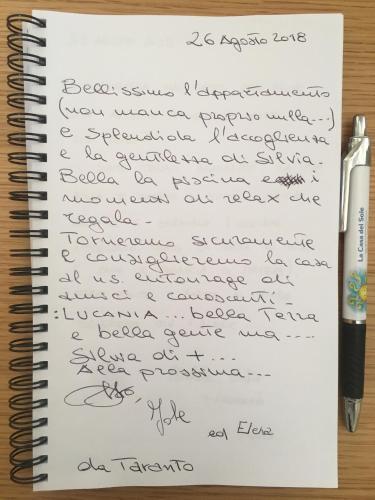 26 Agosto 2018
Bellissimo l'appartamento
(non manca proprio nulla...)
e splendida l'accoglienza
e la gentilezza di Silvia.
Bella la piscina e i
momenti di relax che
regala.
Torneremo sicuramente
e consiglieremo la casa
al ns. entourage di
amici e conoscenti.
:LUCANIA... bella Terra
e bella gente ma....
Silvia di +...
Alla prossima...
ed Elena
da Taranto
La Casa del Sole